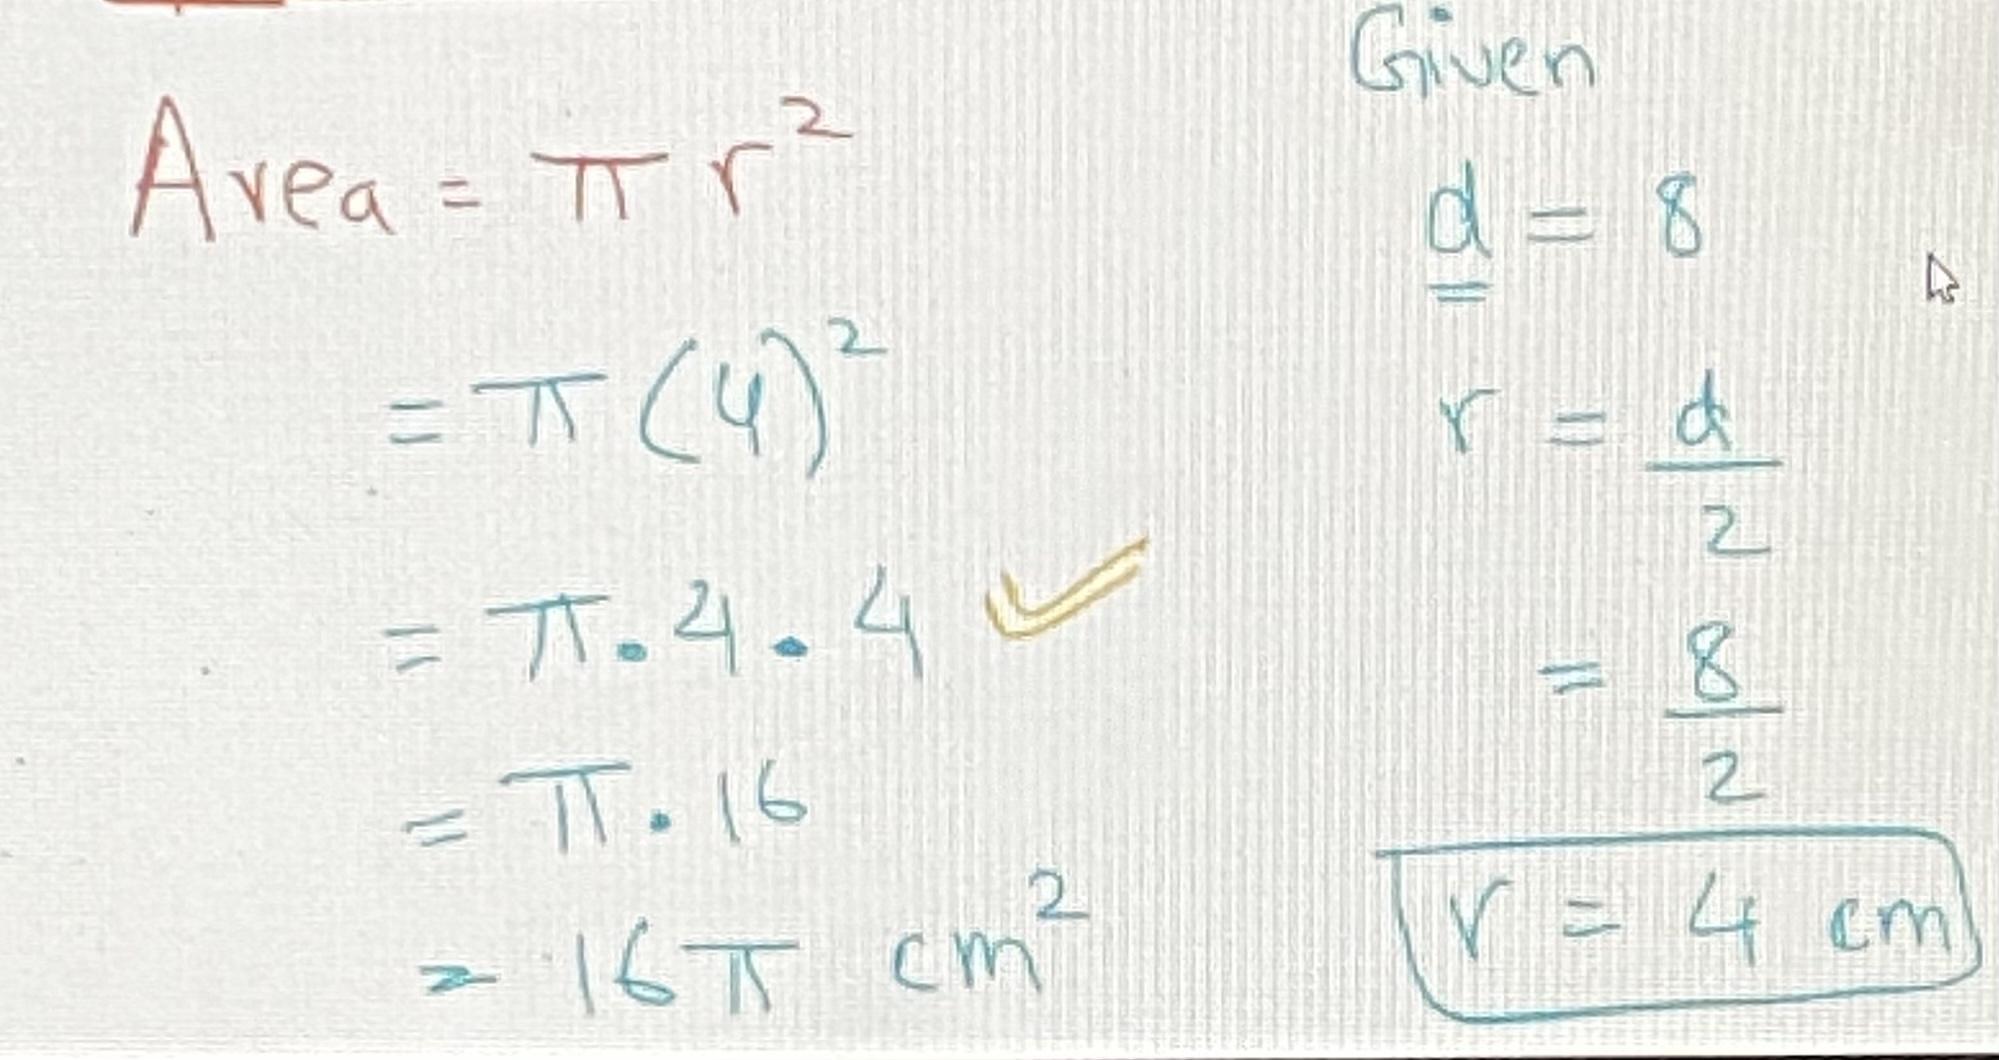 Area = π r²
= π (4)²
= π . 4 . 4
= π . 16
= 16 π cm²
Given
d = 8
r = d/2
= 8/2
r = 4 cm